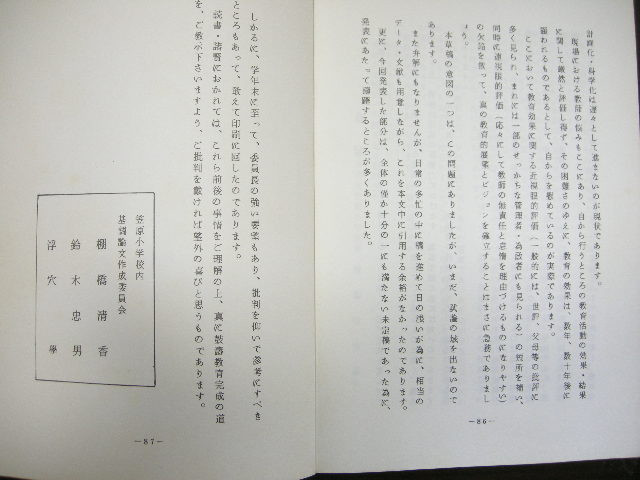 計画化・科学化は遅々として進まないのが現状であります。
現場における教師の悩みもここにあり、自から行うところの教育活動の効果・結果
に関して厳然と評価し得ず、その困難さのゆえに、教育の効果は、数年、数十年後に
顕われるものであるとして、自からを慰めているのが実際であります。
ここにおいて教育効果に関する近視眼的評価（一般的には、世評、父母等の批評に
多く見られ、まれには一部のせっかちな管理者・為政者にも見られる）の短所を補い、
同時に遠視眼的評価（応々にして教師の無責任と怠惰を理由づけるものになりやすい）
の欠陥を救って、真の教育的展望とビジョンを確立することはまさに急務でありまし
ょう。
本草稿の意図の一つは、この問題にありましたが、いまだ、試論の域を出ないので
あります。
また弁解にもなりませんが、日常の多忙の中に稿を進めて日の浅いが為に、相当の
データ・文献も用意しながら、これを本文中に引用する余裕がなかったのであります。
更に、今回発表した部分は、全体の僅か十分の一にも満たない未定稿であった為に、
発表にあたって躊躇するところが多くありました。
—86—
しかるに、学年末に至って、委員長の強い要望もあり、批判を仰いで参考にすべき
ところもあって、敢えて印刷に回したのであります。
読書・諸賢におかれては、これら前後の事情をご理解の上、真に鼓濤教育完成の道
を、ご教示下さいますよう、ご批判を戴ければ望外の喜びと思うものであります。
笠原小学校内
基調論文作成委員会
棚橋清香
鈴木忠男
浮穴學
—87—